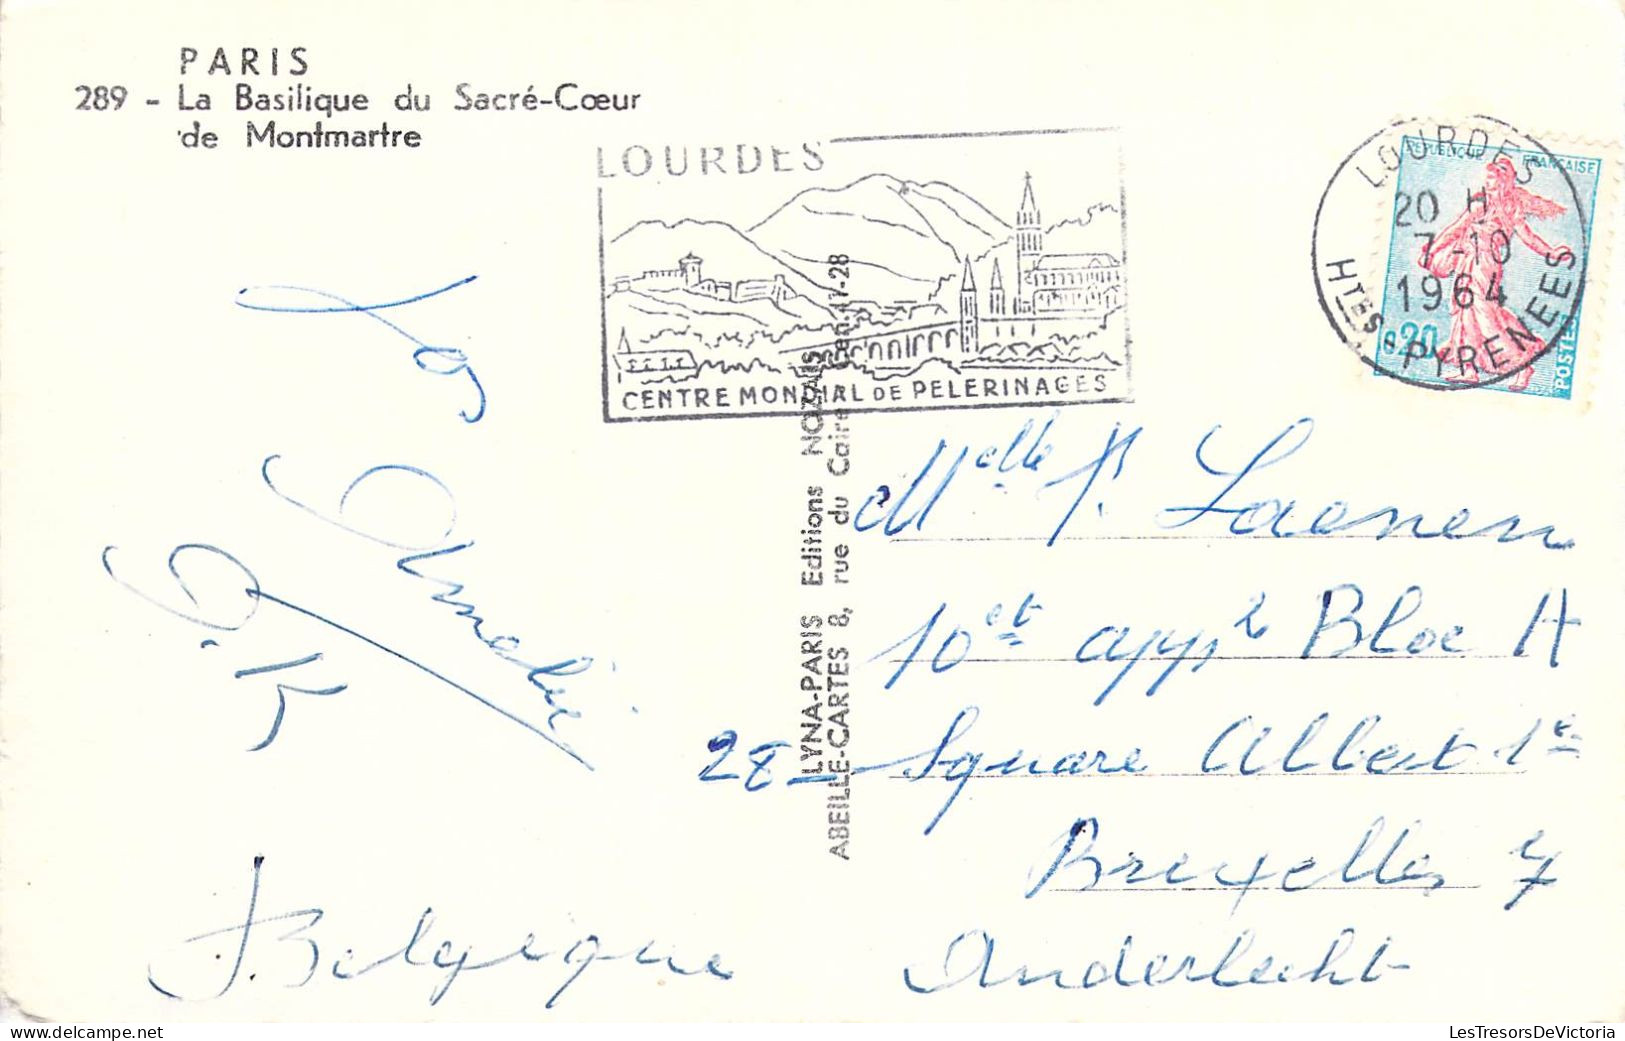 PARIS
289 - La Basilique du Sacré-Cœur
de Montmartre
LOURDES
CENTRE MONDIAL DE PELERINAGES
LOURDES
20 H
7-10
1964
Htes PYRENEES
REPUBLIQUE FRANCAISE
0,20
POSTES
LYNA-PARIS Editions NOZAIS
ABEILLE-CARTES 8, rue du Caire Cen. 17-28
Melle Laenen
10et Bloc A
28 - Square Albert 1e
Bruxelles 7
Anderlecht
Belgique
LesTresorsDeVictoria